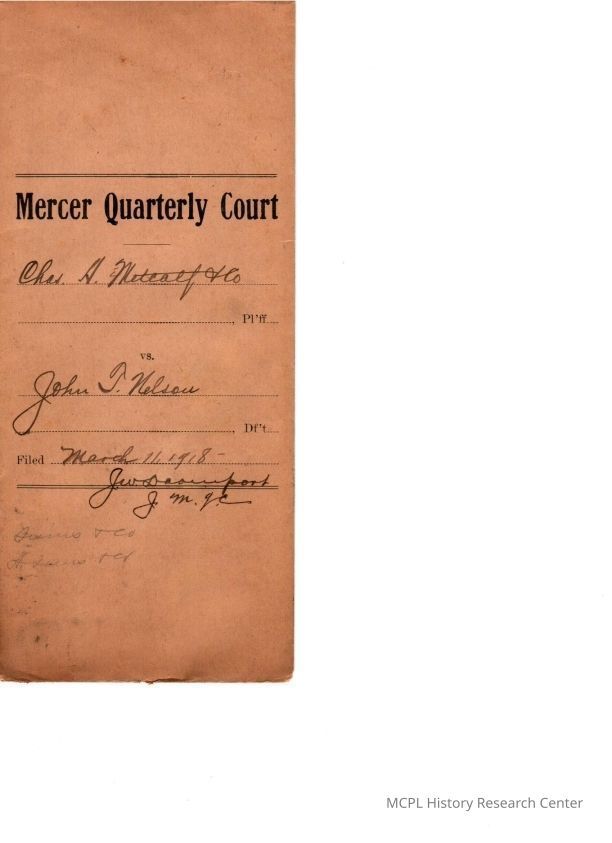 Mercer Quarterly Court
Chas. A. Metcalf & Co
, Pl'ff
vs.
John T. Nelson
, Df't
Filed March 11, 1918
J.
& Co
& Co
MCPL History Research Center